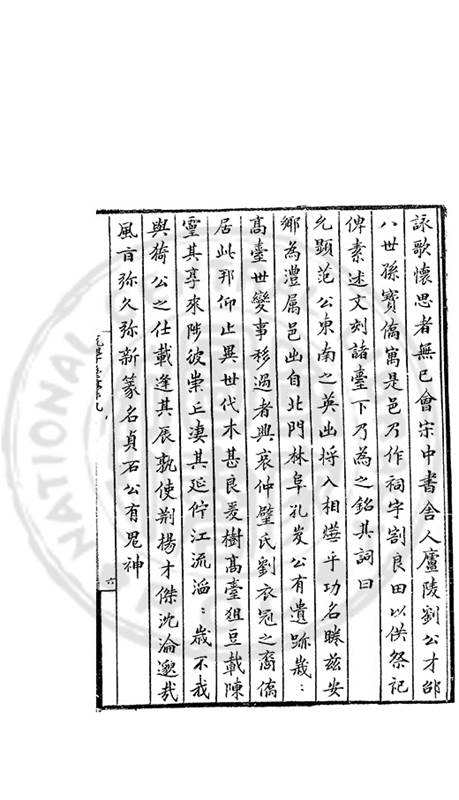 詠歌懷思者無已會宋中書舍人廬陵劉公才邵
八世孫寳僑寓是邑乃作祠宇割良田以供祭祀
俾素述文刻諸臺下乃為之銘其詞曰
允顯范公東南之英出將入相燁乎功名睠兹安
鄉為澧属邑出自北門林阜孔岌公有遺跡嶻〻
高臺世變事移過者興哀仲璧氏劉衣冠之裔僑
居此邦仰止異世代木甚良爰樹髙臺俎豆載陳
靈其享來陟彼崇丘凄其延佇江流滔〻歲不我
與猗公之仕載逢其辰孰使荆楊才傑沈淪邈哉
風旨弥久弥新篆名貞石公有鬼神
六
NATIONAL